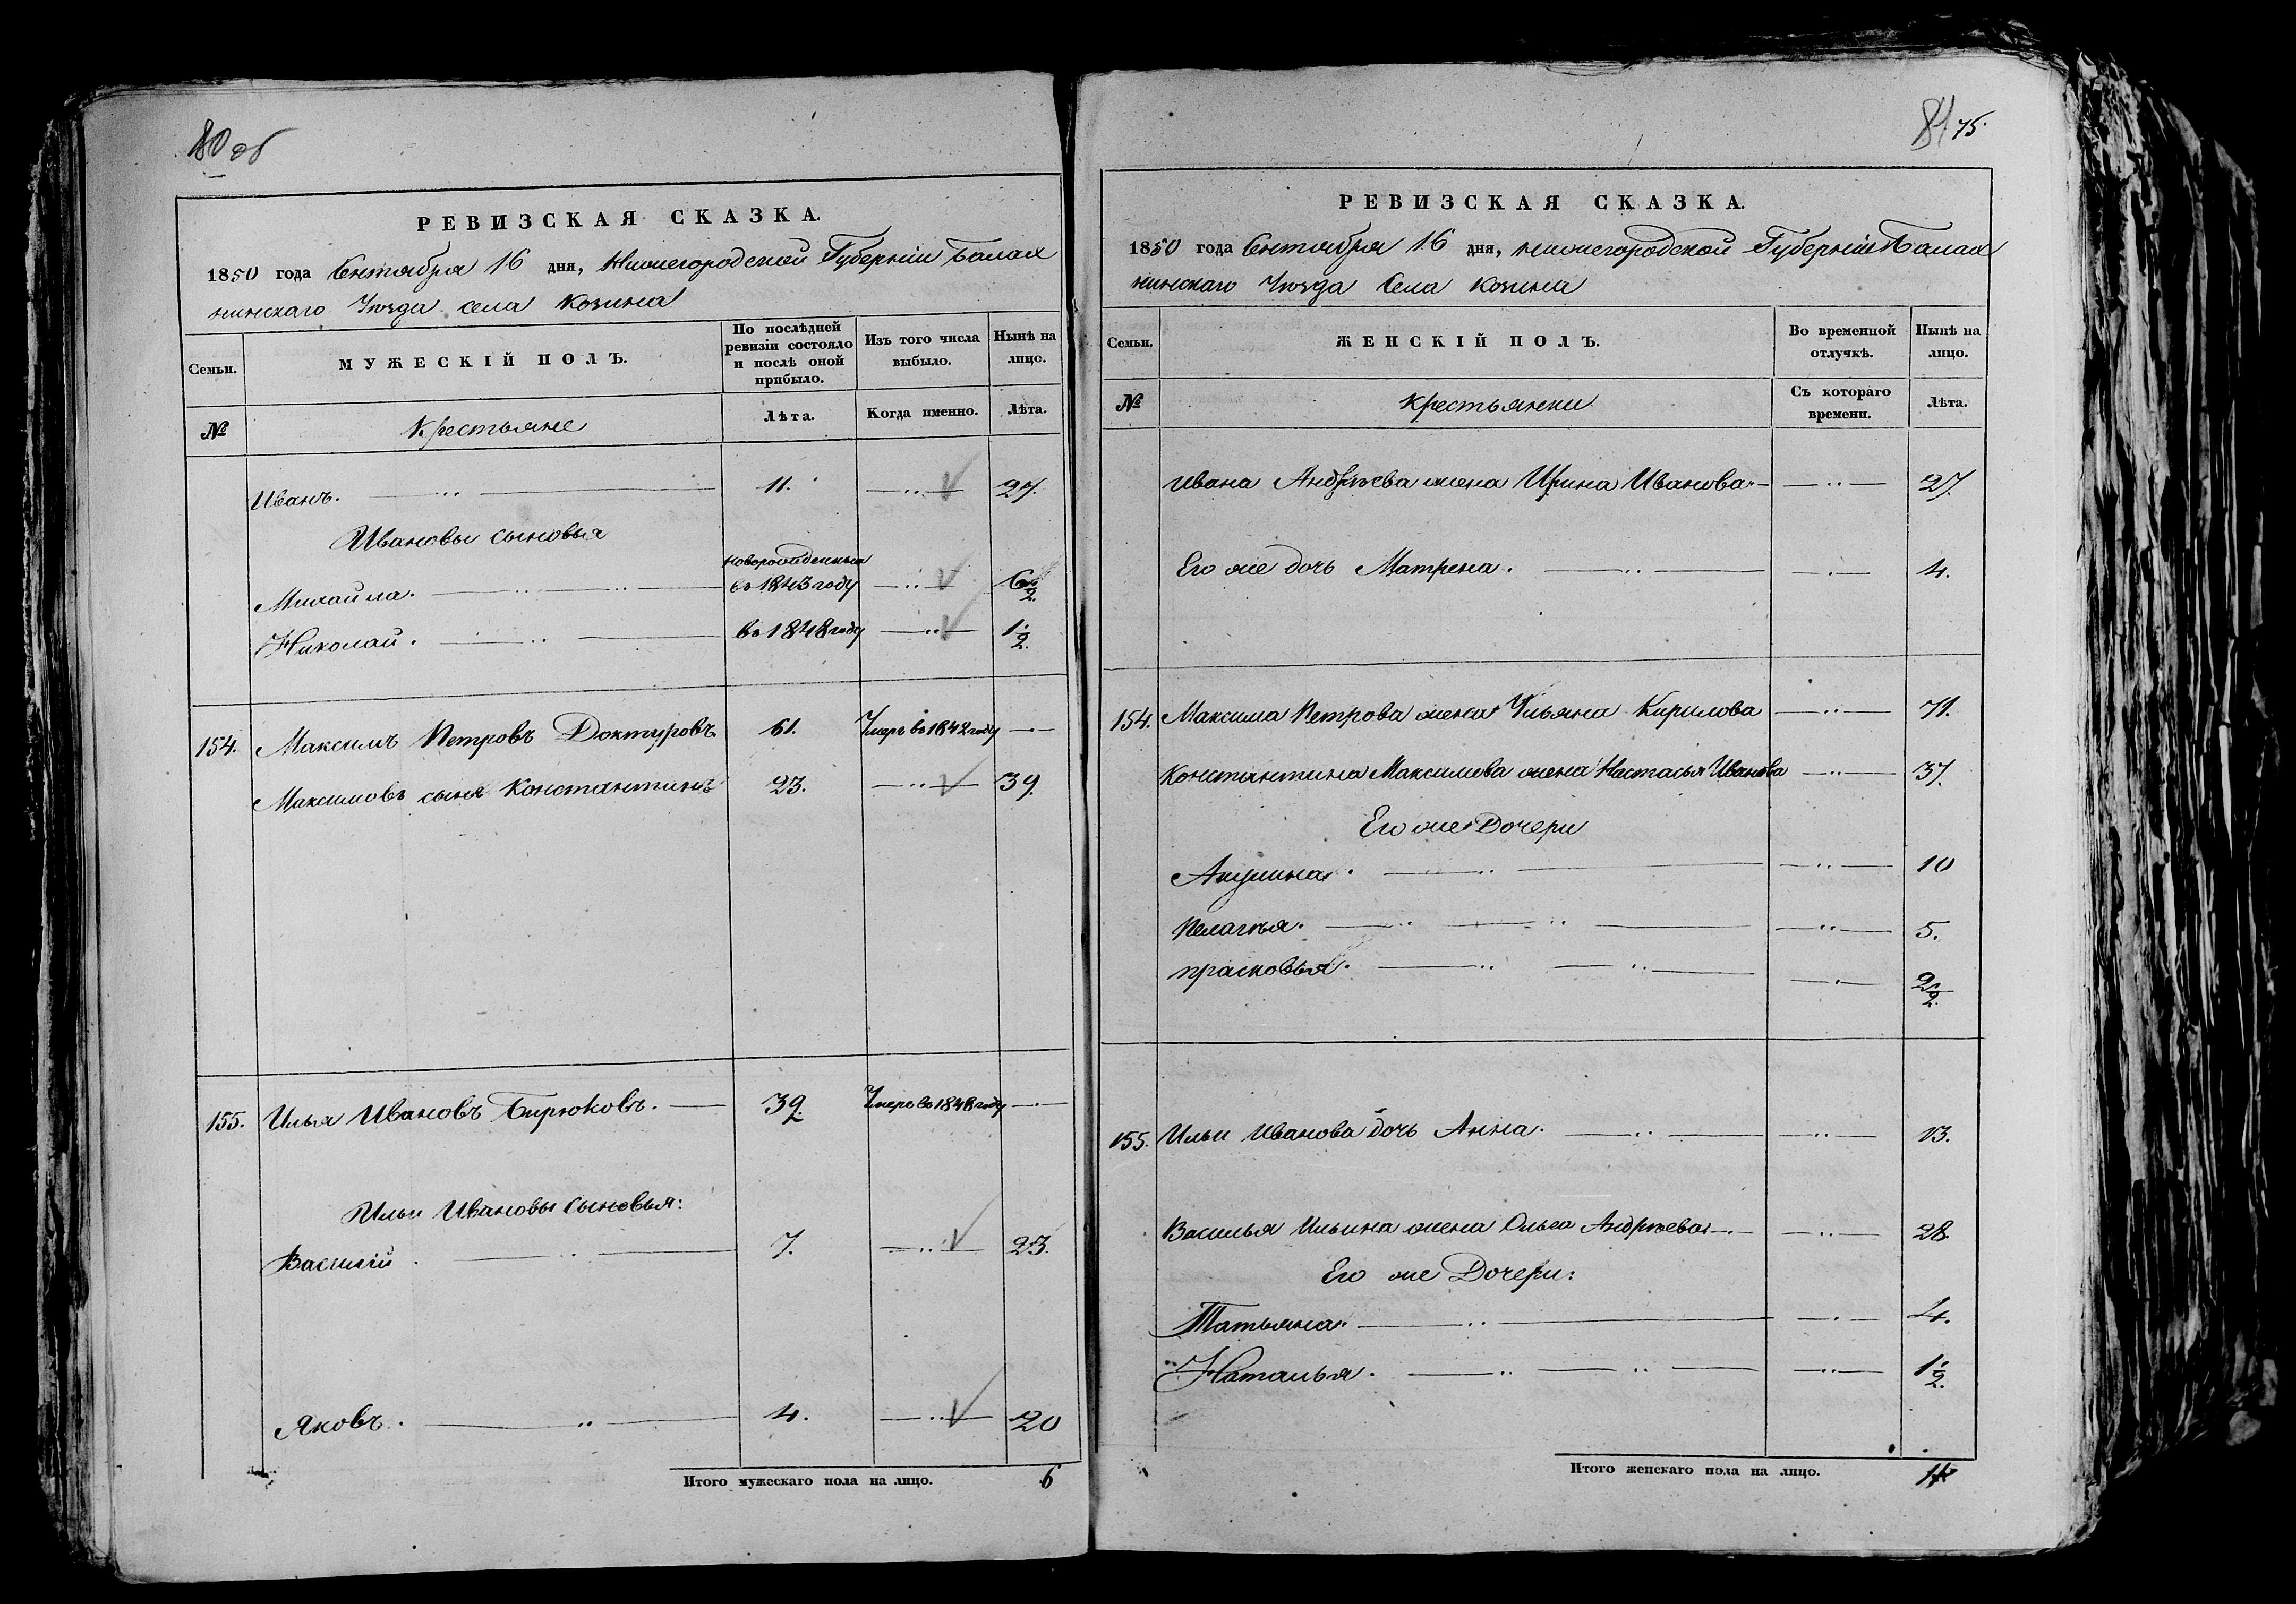 80 об
РЕВИЗСКАЯ СКАЗКА.
1850 года Сентября 16 дня, Нижегородской Губерніи Балах
нинскаго Уѣзда села Козина
Семьи.
МУЖЕСКІЙ ПОЛЪ.
По послѣдней ревизіи состояло и послѣ оной прибыло.
Изъ того числа выбыло.
Нынѣ на лицо.
№
Крестьяне
Лѣта.
Когда именно.
Лѣта.
Иванъ. 11. 27.
Ивановы сыновья
новорожденныя
Михайла. въ 1843 году 6 1/2
Николай. въ 1848 году 1 1/2.
154. Максимъ Петровъ Доктуровъ 61. Умеръ въ 1842 году
Максимовъ сынъ Константинъ 23. 39.
155. Илья Ивановъ Бирюковъ. 39. Умеръ въ 1848 году
Ильи Ивановы сыновья:
Василій. 7. 23.
Яковъ. 4. 20
Итого мужескаго пола на лицо. 6
81 75.
РЕВИЗСКАЯ СКАЗКА.
1850 года Сентября 16 дня, нижегородской Губерніи Балах
нинскаго Уѣзда Села Козина
Семьи.
ЖЕНСКІЙ ПОЛЪ.
Во временной отлучкѣ.
Нынѣ на лицо.
№
Крестьянки
Съ котораго времени.
Лѣта.
Ивана Андрѣева жена Ирина Иванова 27.
Его же дочь Матрена. 4.
154. Максима Петрова жена Ульяна Кирилова 71.
Константина Максимова жена Настасья Иванова 37.
Его же Дочери
Акулина. 10
Пелагѣя. 5.
прасковья. 2 1/2.
155. Ильи Иванова дочь Анна. 13.
Василья Ильина жена Ольга Андрѣева 28
Его же Дочери:
Татьяна. 4.
Наталья. 1 1/2.
Итого женскаго пола на лицо.